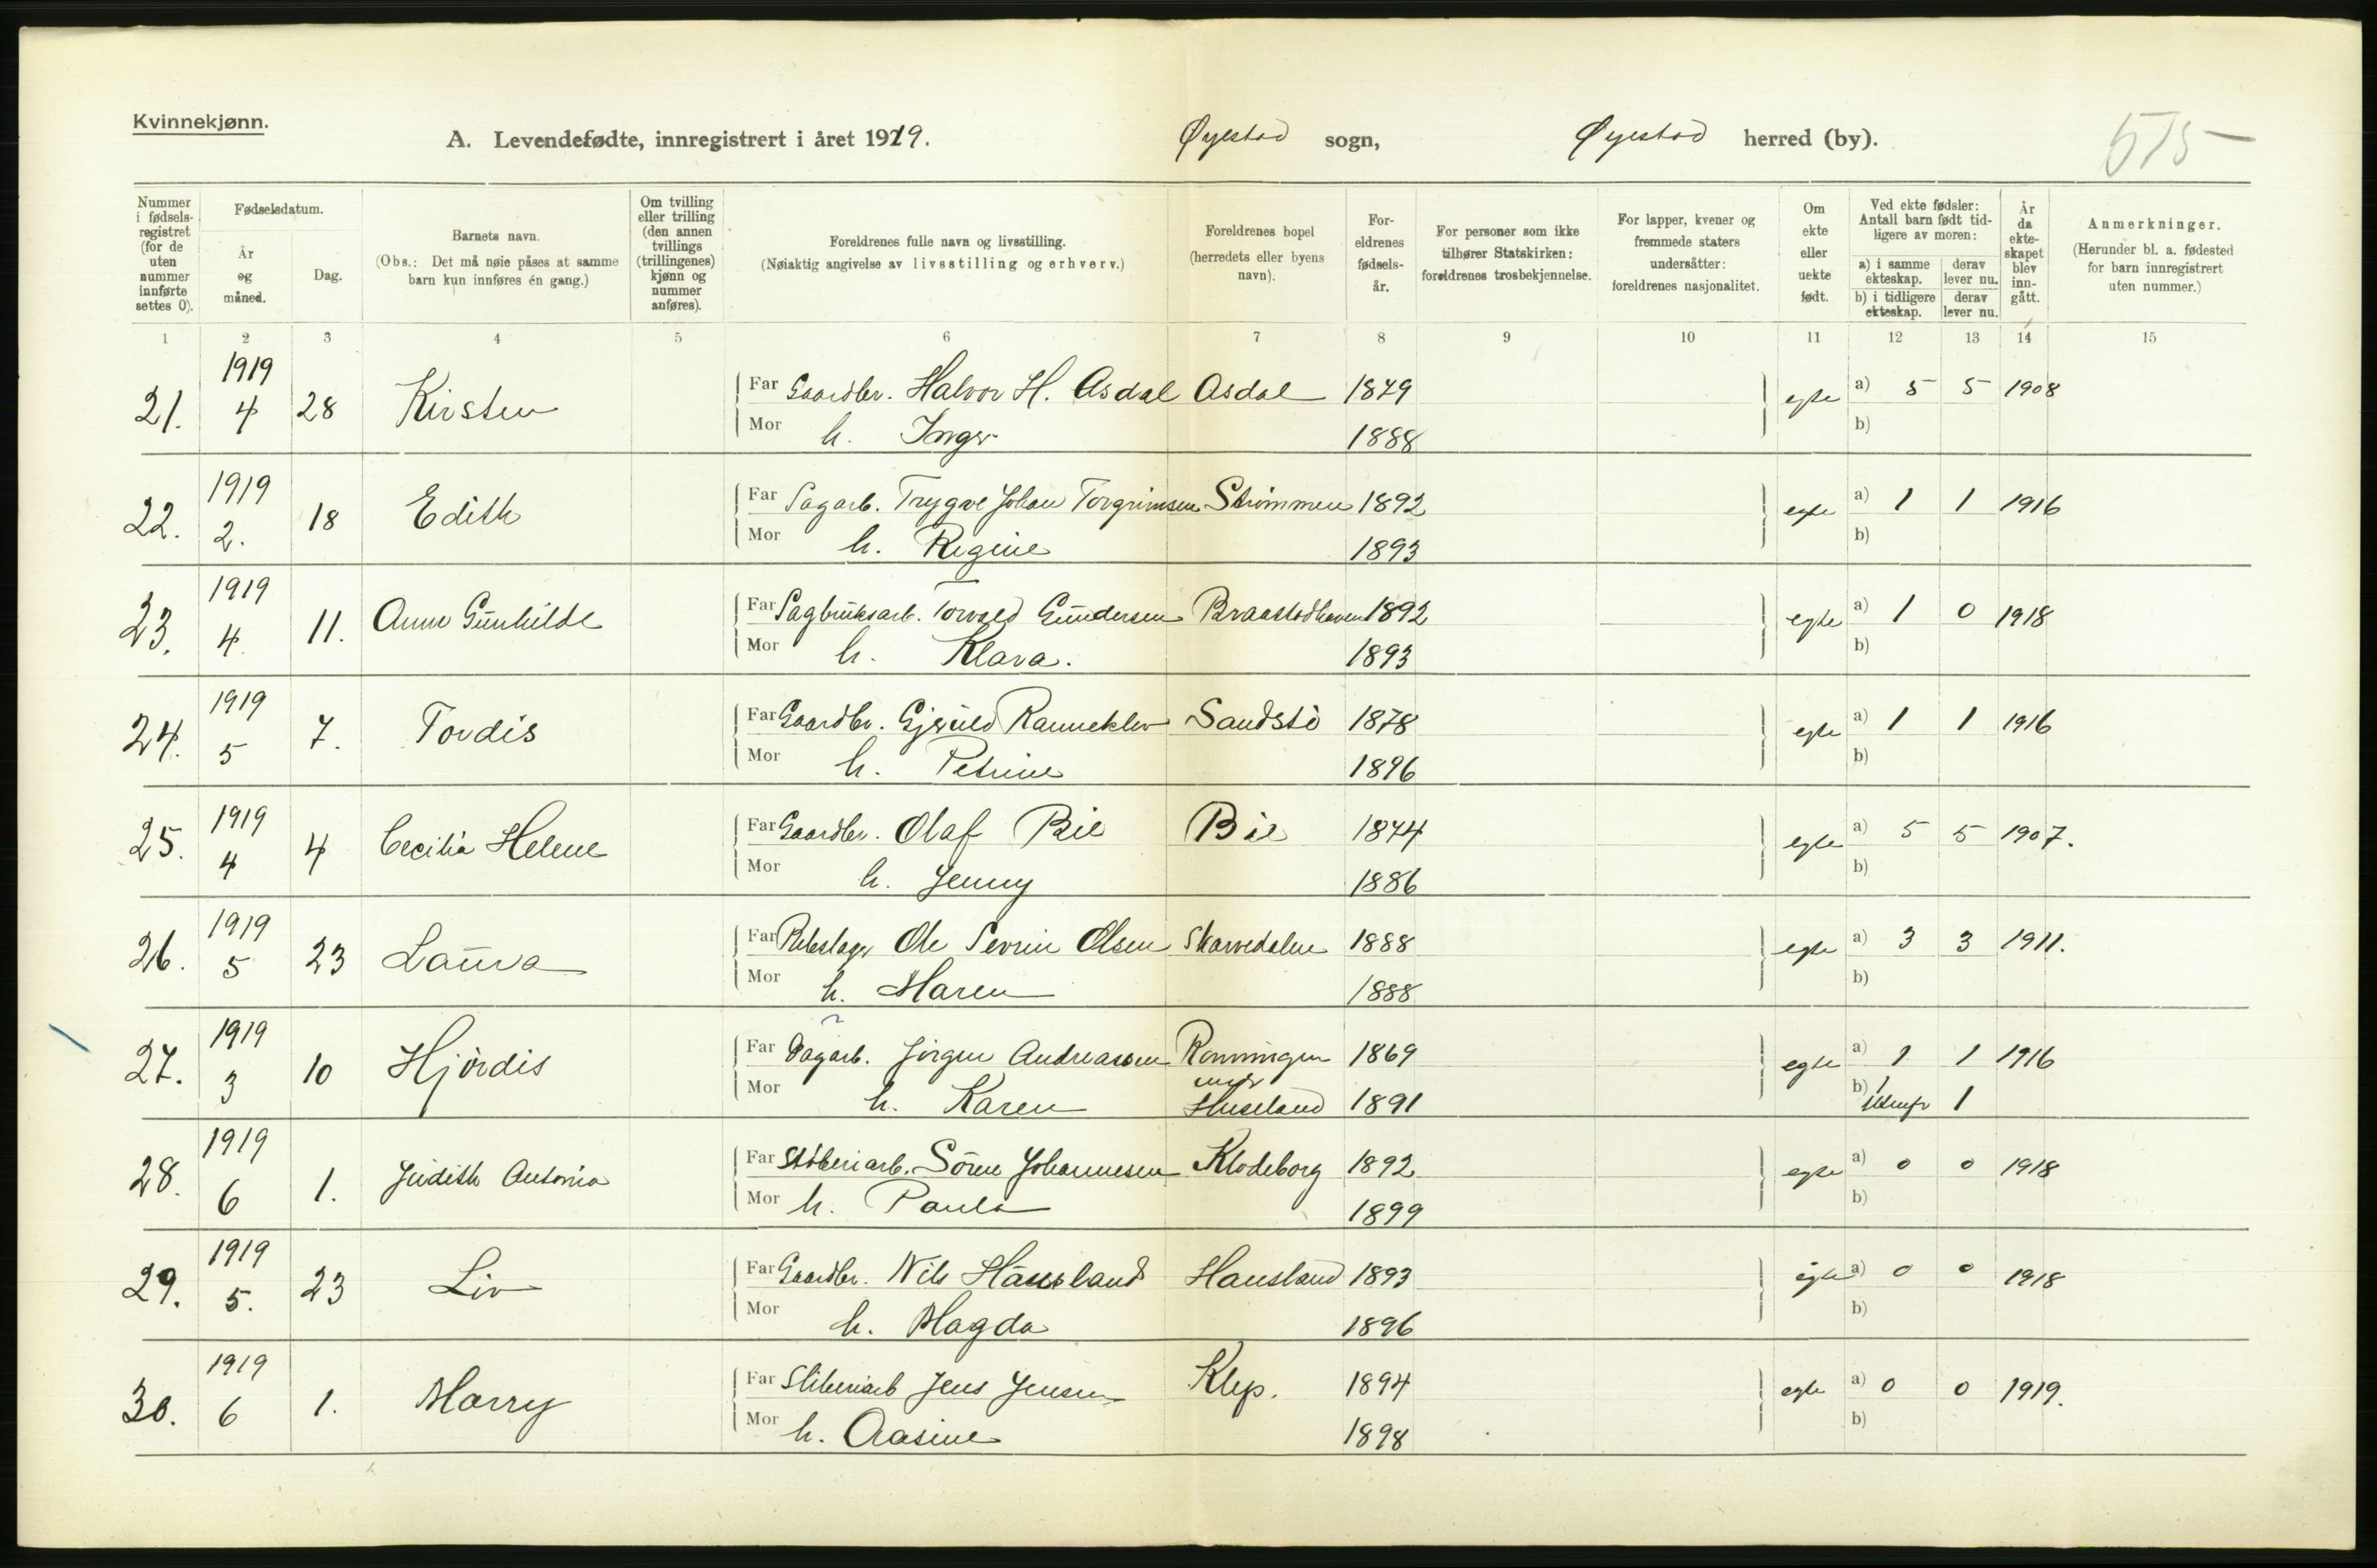 Kvinnekjønn.
A. Levendefødte, innregistrert i året 1919. Øyestad sogn, Øyestad herred (by). 575
Nummer i fødselsregistret (for de uten nummer innførte settes 0).
Fødselsdatum.
År og måned.
Dag.
Barnets navn.
(Obs.: Det må nøie påses at samme barn kun innføres én gang.)
Om tvilling eller trilling (den annen tvillings (trillingenes) kjønn og nummer anføres).
Foreldrenes fulle navn og livsstilling.
(Nøiaktig angivelse av livsstilling og erhverv.)
Foreldrenes bopel (herredets eller byens navn).
Foreldrenes fødselsår.
For personer som ikke tilhører Statskirken: foreldrenes trosbekjennelse.
For lapper, kvener og fremmede staters undersåtter: foreldrenes nasjonalitet.
Om ekte eller uekte født.
Ved ekte fødsler: Antall barn født tidligere av moren:
a) i samme ekteskap. derav lever nu.
b) i tidligere ekteskap. derav lever nu.
År da ekteskapet blev inngått.
Anmerkninger.
(Herunder bl. a. fødested for barn innregistrert uten nummer.)
1 2 3 4 5 6 7 8 9 10 11 12 13 14 15
21. 1919 4 28 Kirsten Far Gaardbr. Halvor H. Asdal Asdal 1879 egte a) 5 5 1908
Mor h. Inger 1888 b)
22. 1919 2. 18 Edith Far Sagarb. Trygve Johan Torgrimsen Strömmen 1892 egte a) 1 1 1916
Mor h. Regine 1893 b)
23. 1919 4. 11. Anne Gunhilde Far Sagbruksarb. Torvald Gundersen Braastadhaven 1892 egte a) 1 0 1918
Mor h. Klara. 1893 b)
24. 1919 5 7. Tordis Far Gaardbr. Gjeruld Ranneklev Sandstö 1878 egte a) 1 1 1916
Mor h. Petrine 1896 b)
25. 1919 4 4 Cecilia Helene Far Gaardbr. Olaf Bie Bie 1874 egte a) 5 5 1907.
Mor h. Jenny 1886 b)
26. 1919 5 23 Laura Far Rebslager Ole Severin Olsen Skarvedalen 1888 egte a) 3 3 1911.
Mor h. Maren 1888 b)
27. 1919 3 10 Hjördis Far Dagarb. Jörgen Andreassen Rönningen 1869 egte a) 1 1 1916
Mor h. Karen under Huseland 1891 b) 1 1
28. 1919 6 1. Judith Antonia Far Stöberiarb. Sören Johannesen Klodeborg 1892 egte a) 0 0 1918
Mor h. Paula 1899 b)
29. 1919 5. 23 Liv Far Gaardbr. Nils Hausland Hausland 1893 egte a) 0 0 1918
Mor h. Magda 1896 b)
30. 1919 6 1. Marry Far Stöberiarb Jens Jensen Klep. 1894 egte a) 0 0 1919.
Mor h. Aasine 1898 b)